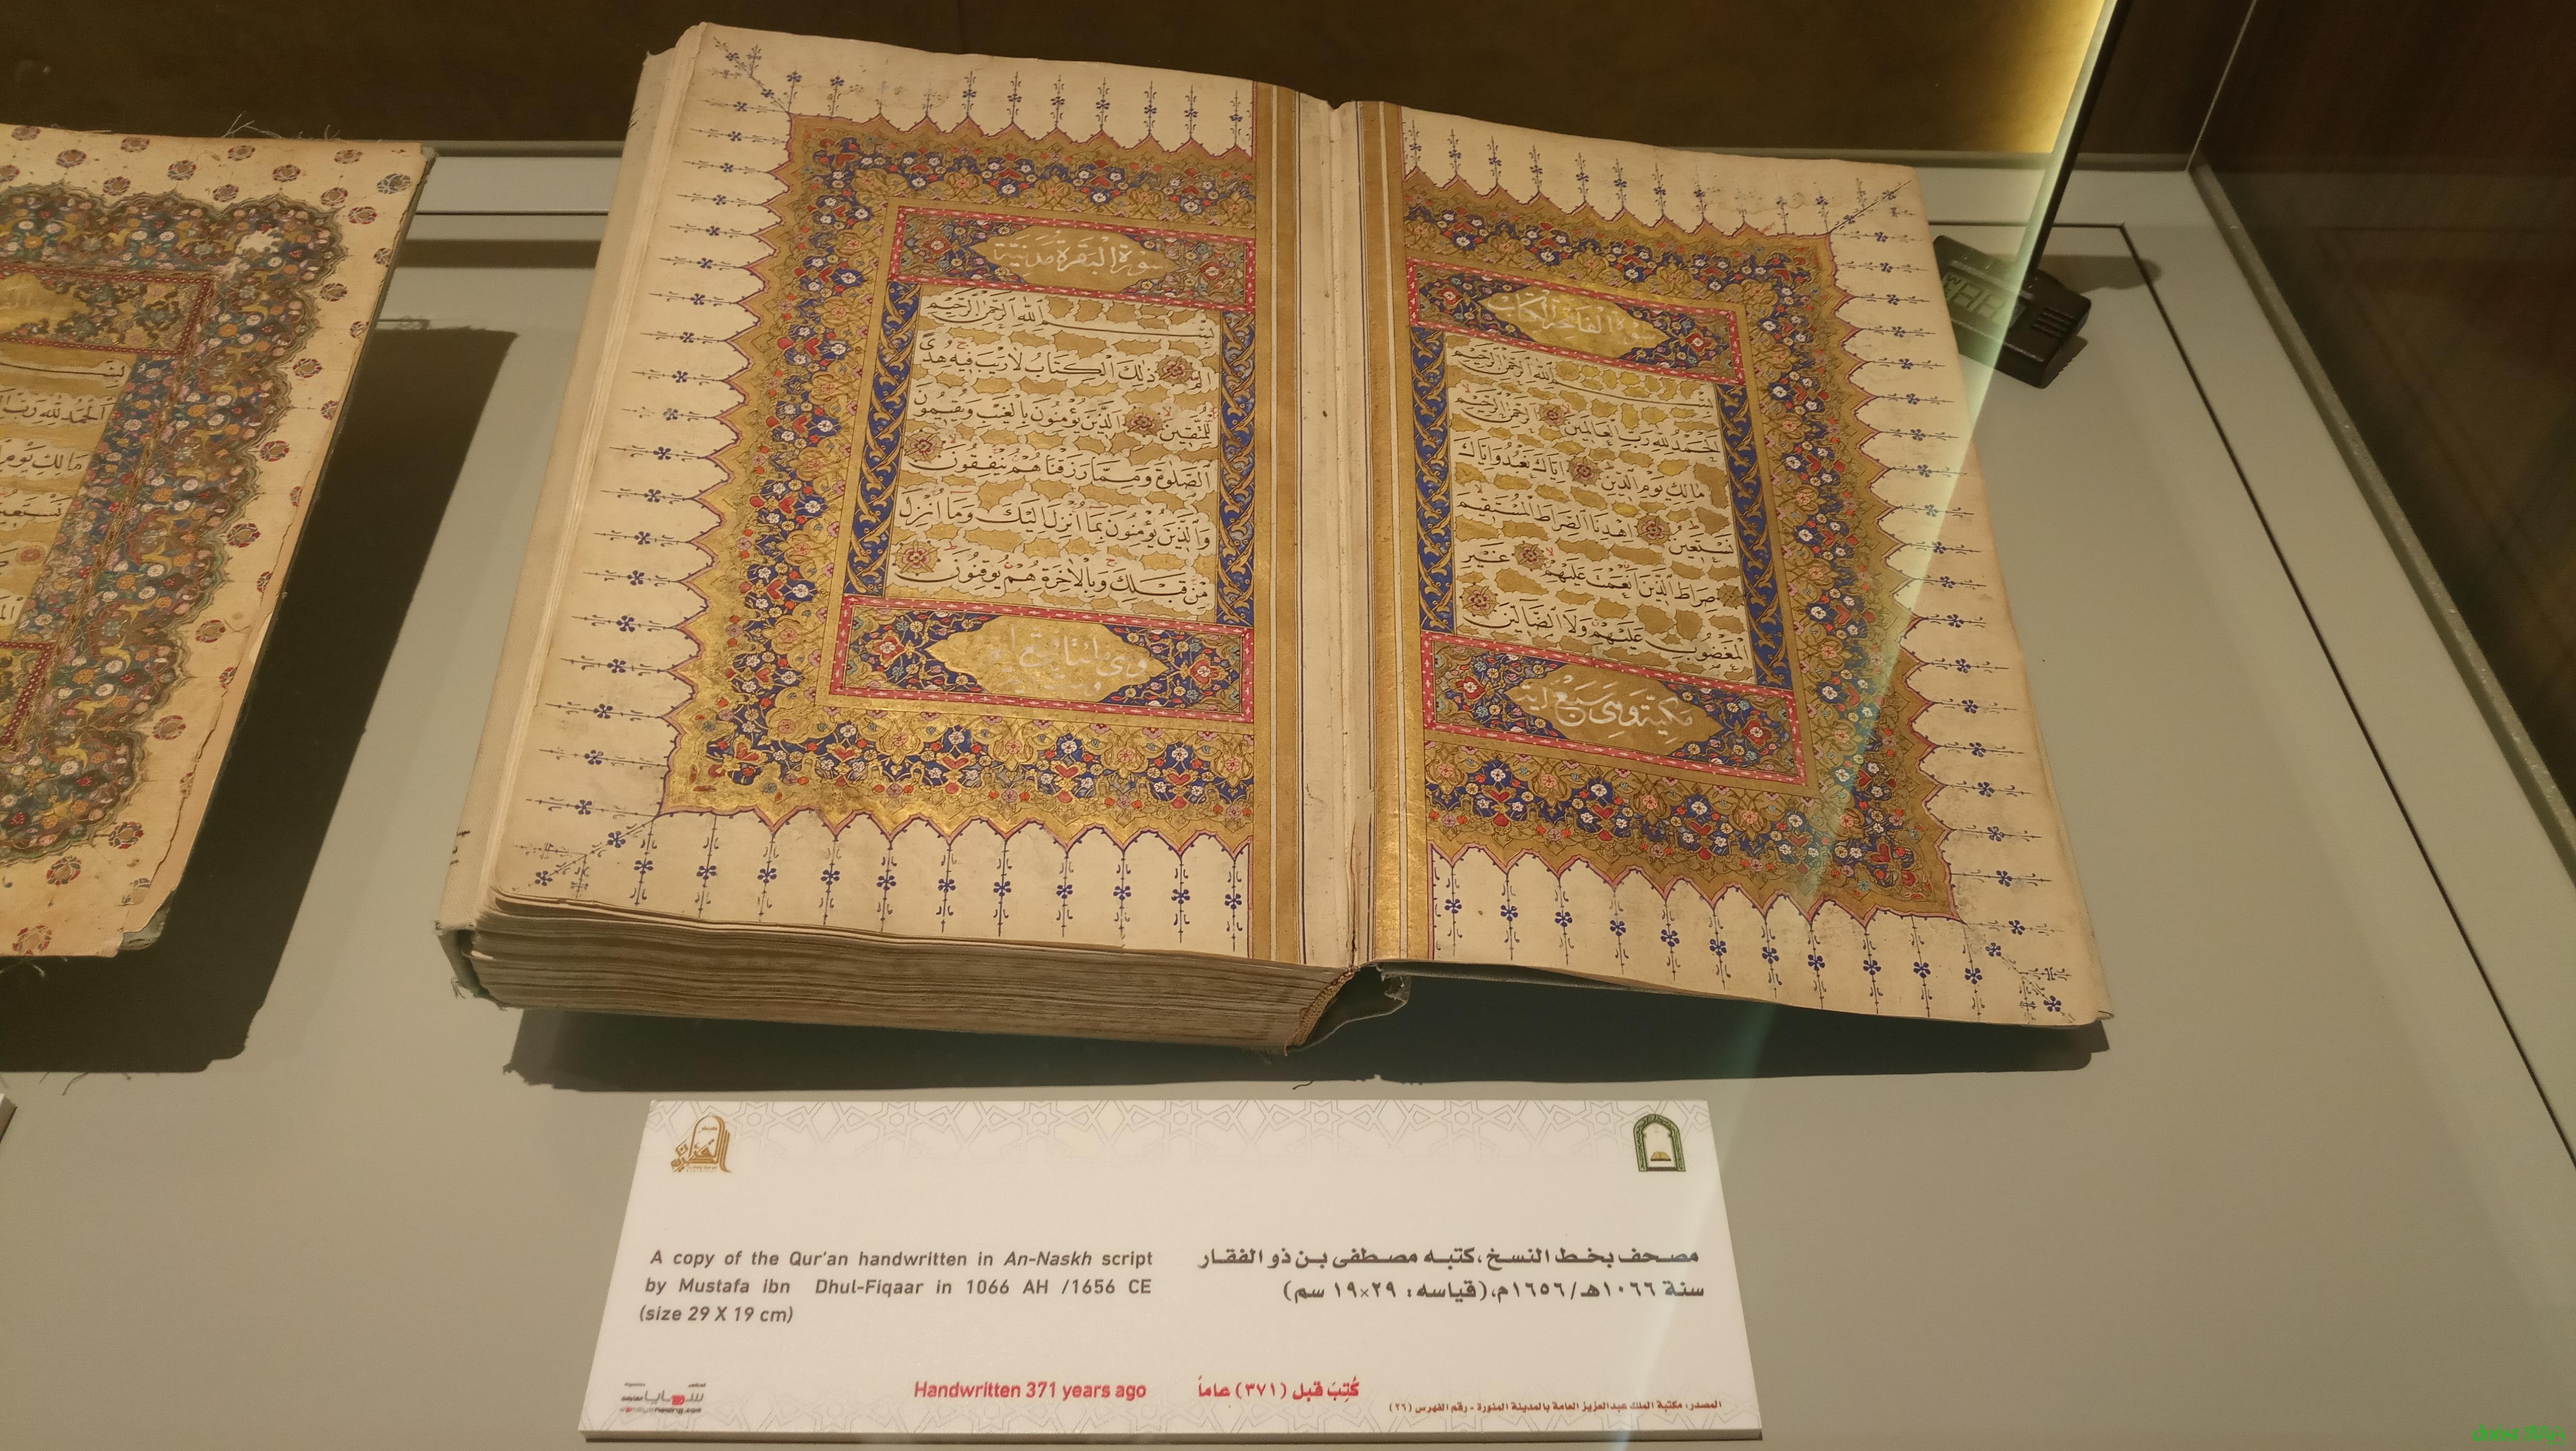 سورة الفاتحة الكتاب
بسم الله الرحمن الرحيم
الحمد لله رب العالمين الرحمن الرحيم
مالك يوم الدين اياك نعبد واياك
نستعين اهدنا الصراط المستقيم
صراط الذين انعمت عليهم غير
المغضوب عليهم ولا الضالين
مكية وهي سبع اية
سورة البقرة مدنية
بسم الله الرحمن الرحيم
الم ذلك الكتاب لا ريب فيه هدى
للمتقين الذين يؤمنون بالغيب ويقيمون
الصلوة ومما رزقناهم ينفقون
والذين يؤمنون بما انزل اليك وما انزل
من قبلك وبالاخرة هم يوقنون
وهي
الحمد لله رب
مالك يوم
نستعين
A copy of the Qur'an handwritten in An-Naskh script
by Mustafa ibn Dhul-Fiqaar in 1066 AH /1656 CE
(size 29 X 19 cm)
Handwritten 371 years ago
مصحف بخط النسخ، كتبه مصطفى بن ذو الفقار
سنة ١٠٦٦هـ/١٦٥٦م، (قياسه: ٢٩×١٩ سم)
كُتِبَ قبل (٣٧١) عاماً
المصدر: مكتبة الملك عبدالعزيز العامة بالمدينة المنورة - رقم الفهرس (٢٦)
سمايا